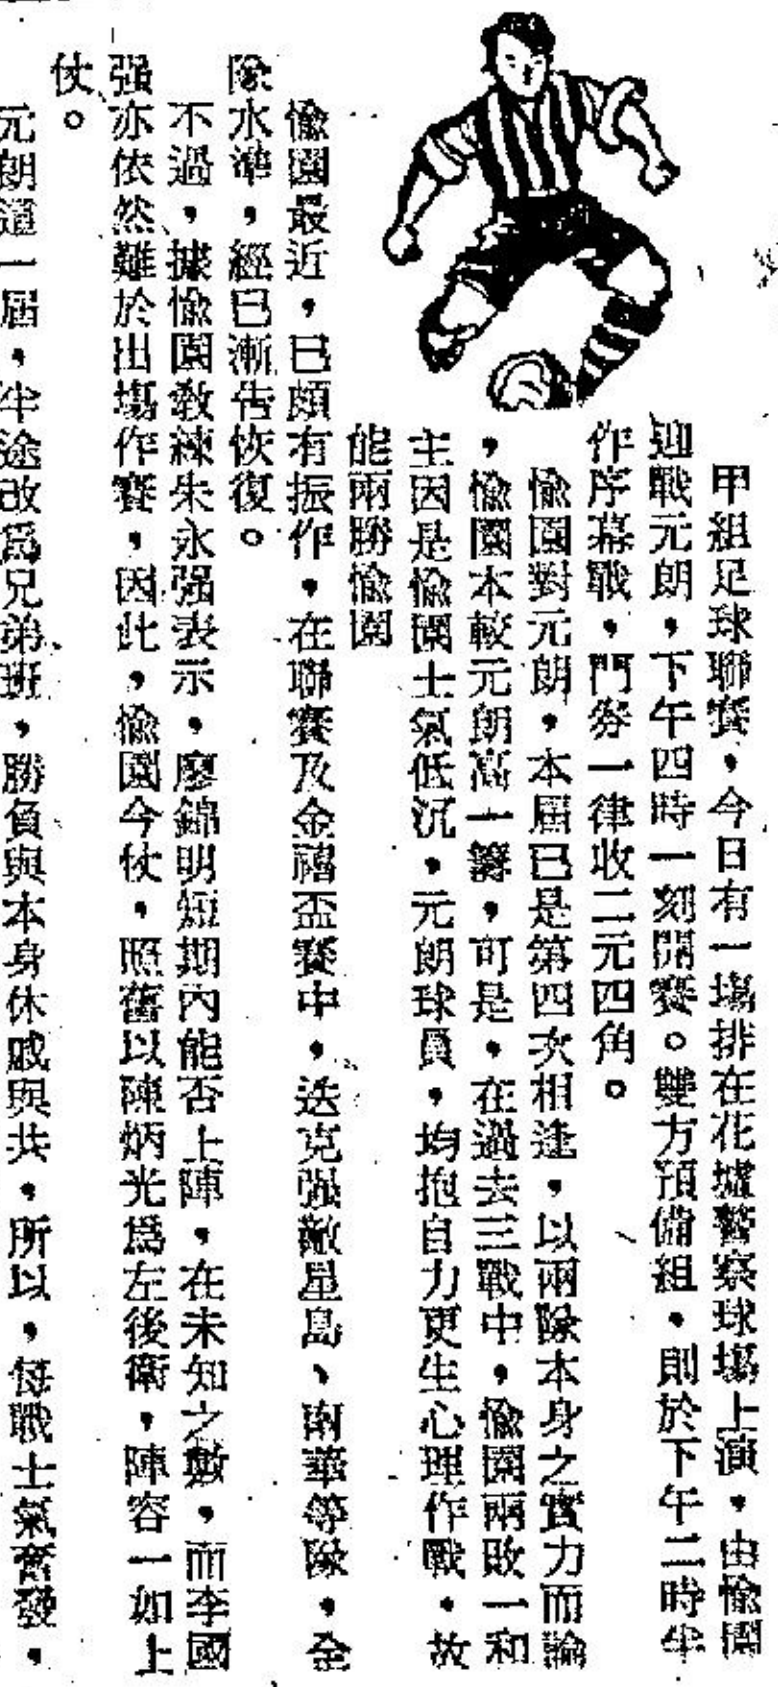 甲組足球聯賽，今日有一塲排在花墟警察球塲上演，由愉園
迎戰元朗，下午四時一刻開賽。雙方預備組，則於下午二時半
作序幕戰，門券一律收二元四角。
愉園對元朗，本屆已是第四次相逢，以兩隊本身之實力而論
，愉園本較元朗高一籌，可是，在過去三戰中，愉園兩敗一和
主因是愉園士氣低沉，元朗球員，均抱自力更生心理作戰，故
能兩勝愉園
愉園最近，已頗有振作，在聯賽及金禧盃賽中，迭克强敵星島、南華等隊，全
隊水準，經已漸告恢復。
不過，據愉園敎練朱永强表示，廖錦明短期內能否上陣，在未知之數，而李國
强亦依然難於出塲作賽，因此，愉園今仗，照舊以陳炳光爲左後衛，陣容一如上
仗。
元朗這一屆，半途改爲兄弟班，勝負與本身休戚與共，所以，每戰士氣奮發，